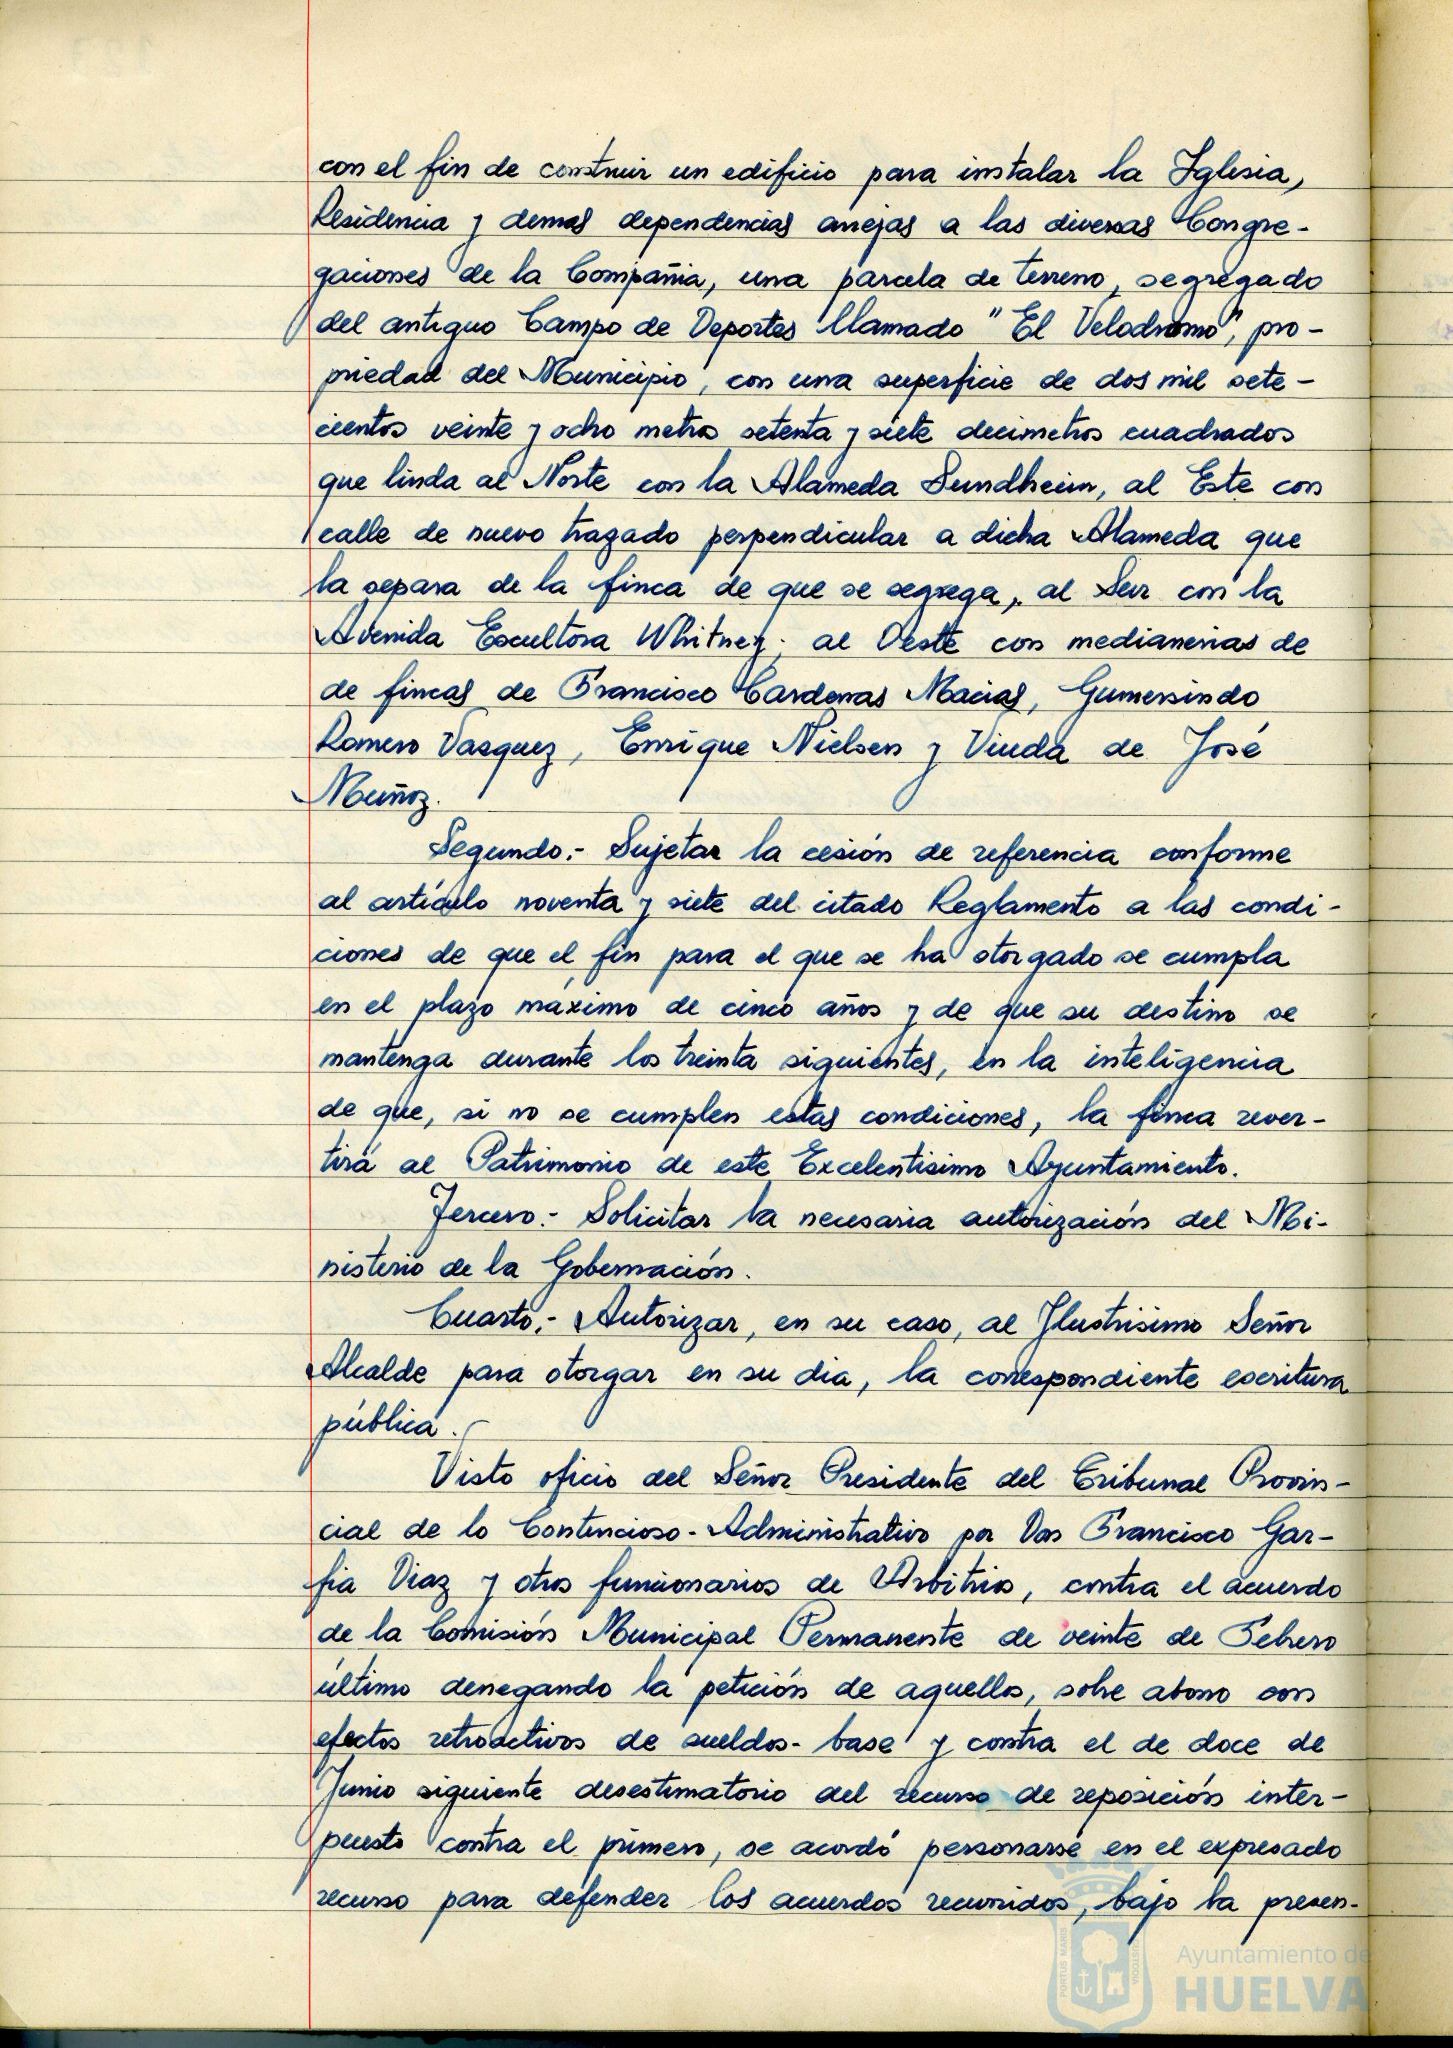 con el fin de construir un edificio para instalar la Iglesia,
Residencia y demas dependencias anejas a las diversas Congre-
gaciones de la Compañia, una parcela de terreno, segregado
del antiguo Campo de Deportes llamado "El Velodromo", pro-
priedad del Municipio, con una superficie de dos mil sete-
cientos veinte y ocho metros setenta y siete decimetros cuadrados
que linda al Norte con la Alameda Sundheim, al Este con
calle de nuevo trazado perpendicular a dicha Alameda que
la separa de la finca de que se segrega, al Sur con la
Avenida Escultora Whitney; al Oeste con medianerias de
de fincas de Francisco Cardenas Macias, Gumersindo
Romero Vasquez, Enrique Nielsen y Viuda de José
Muñoz.
Segundo.- Sujetar la cesión de referencia conforme
al artículo noventa y siete del citado Reglamento a las condi-
ciones de que el fin para el que se ha otorgado se cumpla
en el plazo máximo de cinco años y de que su destino se
mantenga durante los treinta siguientes, en la inteligencia
de que, si no se cumplen estas condiciones, la finca rever-
tirá al Patrimonio de este Excelentisimo Ayuntamiento.
Tercero.- Solicitar la necesaria autorización del Mi-
nisterio de la Gobernación.
Cuarto.- Autorizar, en su caso, al Ilustrisimo Señor
Alcalde para otorgar en su dia, la correspondiente escritura
pública.
Visto oficio del Señor Presidente del Tribunal Provin-
cial de lo Contencioso-Administrativo por Don Francisco Gar-
fia Diaz y otros funcionarios de Arbitrios, contra el acuerdo
de la Comisión Municipal Permanente de veinte de Febrero
último denegando la petición de aquellos, sobre abono con
efectos retroactivos de sueldos-base y contra el de doce de
Junio siguiente desestimatorio del recurso de reposición inter-
puesto contra el primero, se acordó personarse en el expresado
recurso para defender los acuerdos recurridos, bajo la presen-
PORTUS MARIS
CUSTODIA
Ayuntamiento de
HUELVA